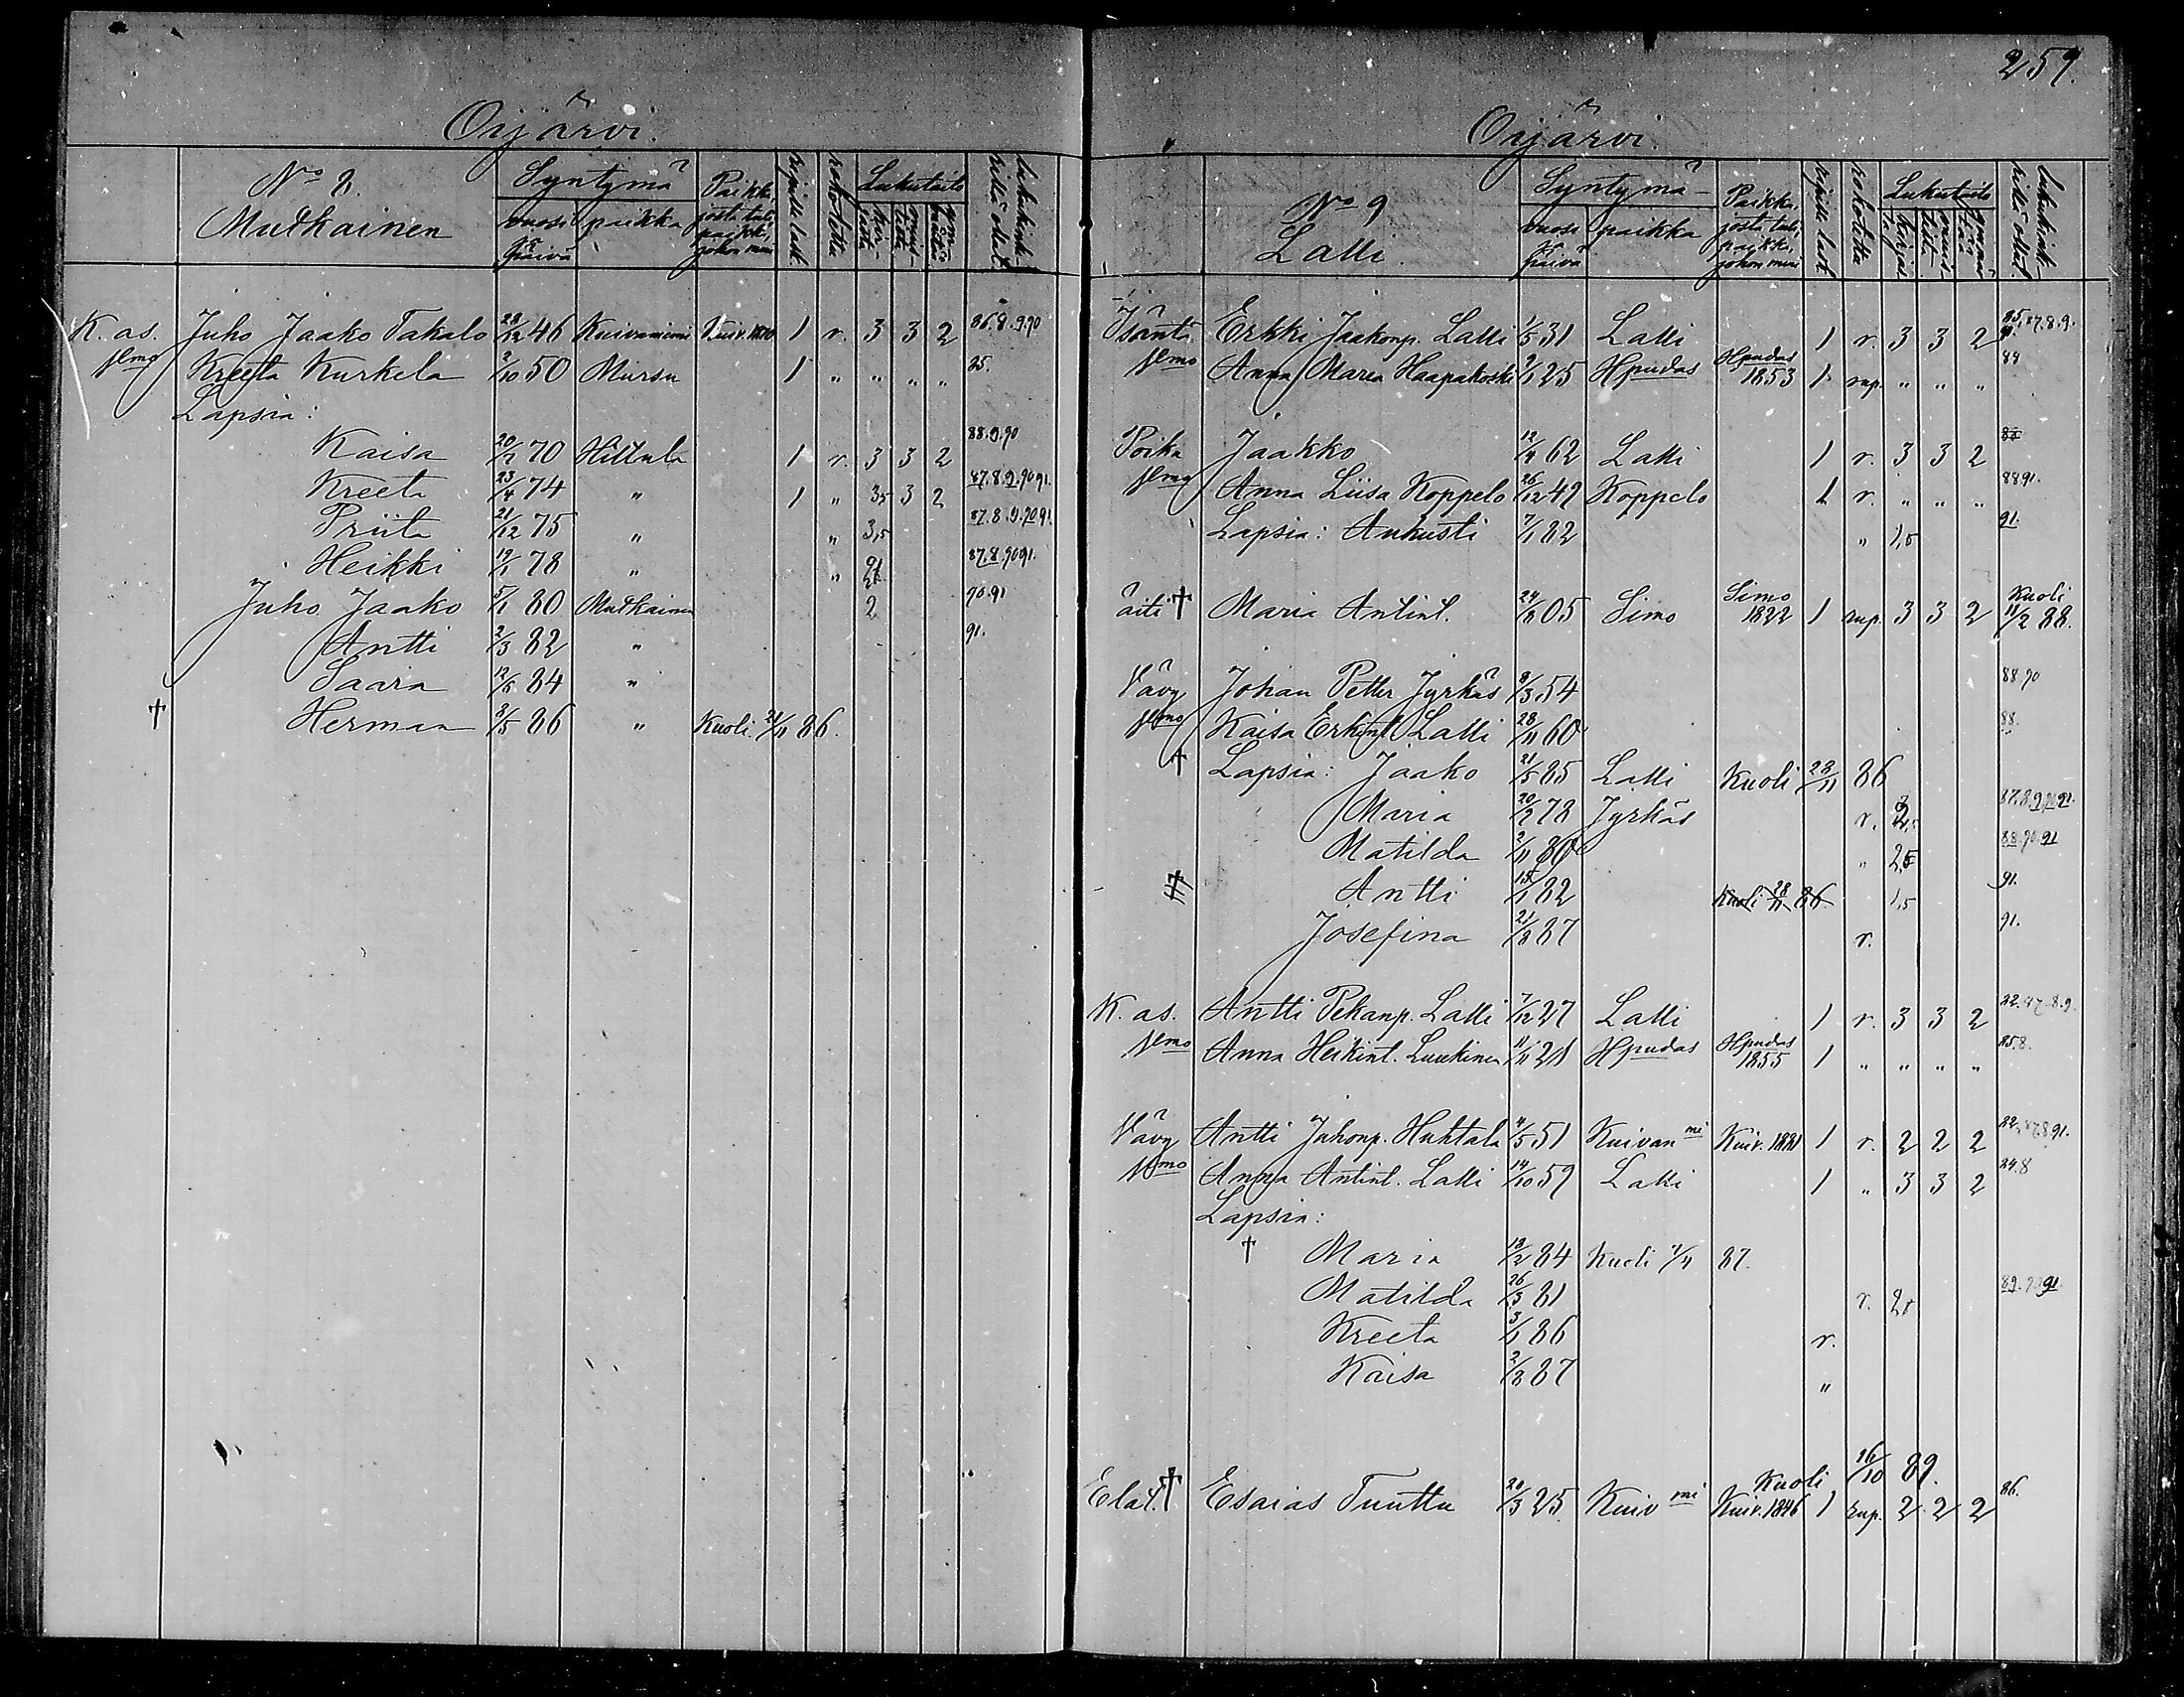 259.
Oijärvi.
No 8.
Mutkainen
Syntymä
vuosi ja päivä
paikka
Paikka, josta tuli, paikka, johon muni
ripille lask.
rokotettu
Lukutaito
K. as. Juho Jaako Takalo 28/12 46 Kuivaniemi Kuiv. 1880 1 r. 3 3 2 86.8.9.90
vmo Kreeta Kurkela 2/10 50 Mursu 1 " " " " 85.
Lapsia:
Kaisa 20/7 70 Hiltula 1 r. 3 3 2 88.9.90
Kreeta 23/4 74 " 1 " 3,5 3 2 87.8.9.90 91.
Priita 21/12 75 " " 3,5 87.8.9.90 91.
Heikki 19/1 78 " " 87.8.90 91.
Juho Jaako 5/1 80 Mutkainen 2 90.91
Antti 2/3 82 " 91.
Saara 12/6 84 "
† Herman 8/5 86 " Kuoli 21/11 86.
Oijärvi
No 9
Lalli.
Syntymä
vuosi ja päivä
paikka
Paikka, josta tuli, paikka, johon muni
ripille lask.
rokotettu
Lukutaito
Isäntä Erkki Jaakonp. Lalli 1/5 31 Lalli 1 r. 3 3 2 85,87.8.9.
vmo Anna Maria Haapakoski 2/1 25 Hpudas Hpudas 1853 1 rup. " " " 88
Poika Jaakko 12/4 62 Lalli 1 r. 3 3 2
vmo Anna Liisa Koppelo 26/12 49 Koppelo 1 r. " " " 88 91.
Lapsia: Aukusti 7/1 82 " 1,5 91.
äiti † Maria Antint. 24/8 05 Simo Simo 1822 1 rup. 3 3 2 Kuoli 11/2 88.
Vävy Johan Petter Jyrkäs 8/3 54 88 90
vmo Kaisa Erkint. Lalli 28/11 60 88.
† Lapsia: Jaako 21/5 85 Lalli Kuoli 28/11 86
Maria 20/2 78 Jyrkäs r. 87.8.9.90 91.
Matilda 2/11 80 " 2,5 88.90 91
† Antti 15/1 82 Kuoli 28/11 86 1,5 91.
Josefina 21/8 87 r. 91.
K. as. Antti Pekanp. Lalli 7/12 27 Lalli 1 r. 3 3 2
vmo Anna Heikint. Luukinen 11/11 21 Hpudas Hpudas 1855 1 " " " " 85.8.
Vävy Antti Juhonp. Huhtala 4/5 51 Kuivanmi Kuiv. 1881 1 r. 2 2 2
vmo Anna Antint. Lalli 14/10 59 Lalli 1 " 3 3 2 84.8
Lapsia:
† Maria 18/2 84 Kuoli 7/4 87.
Matilda 26/3 81 r. 89.90 91.
Kreeta 3/1 86 r.
Kaisa 2/8 87 "
Kuoli 16/10 89.
Elät. † Esaias Tuuttu 20/3 25 Kuivmi Kuiv. 1846 1 rup. 2 2 2 86.